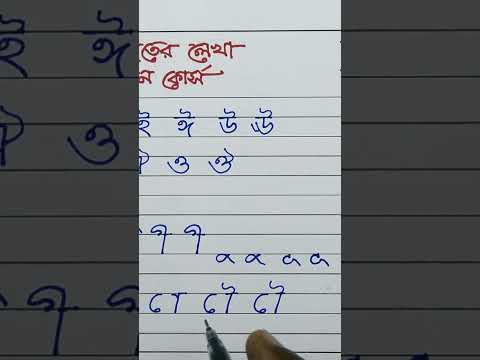 তের লেখা
ম কোর্স
ই ঈ উ ঊ
ও ঔ
ো ৌ ৌ